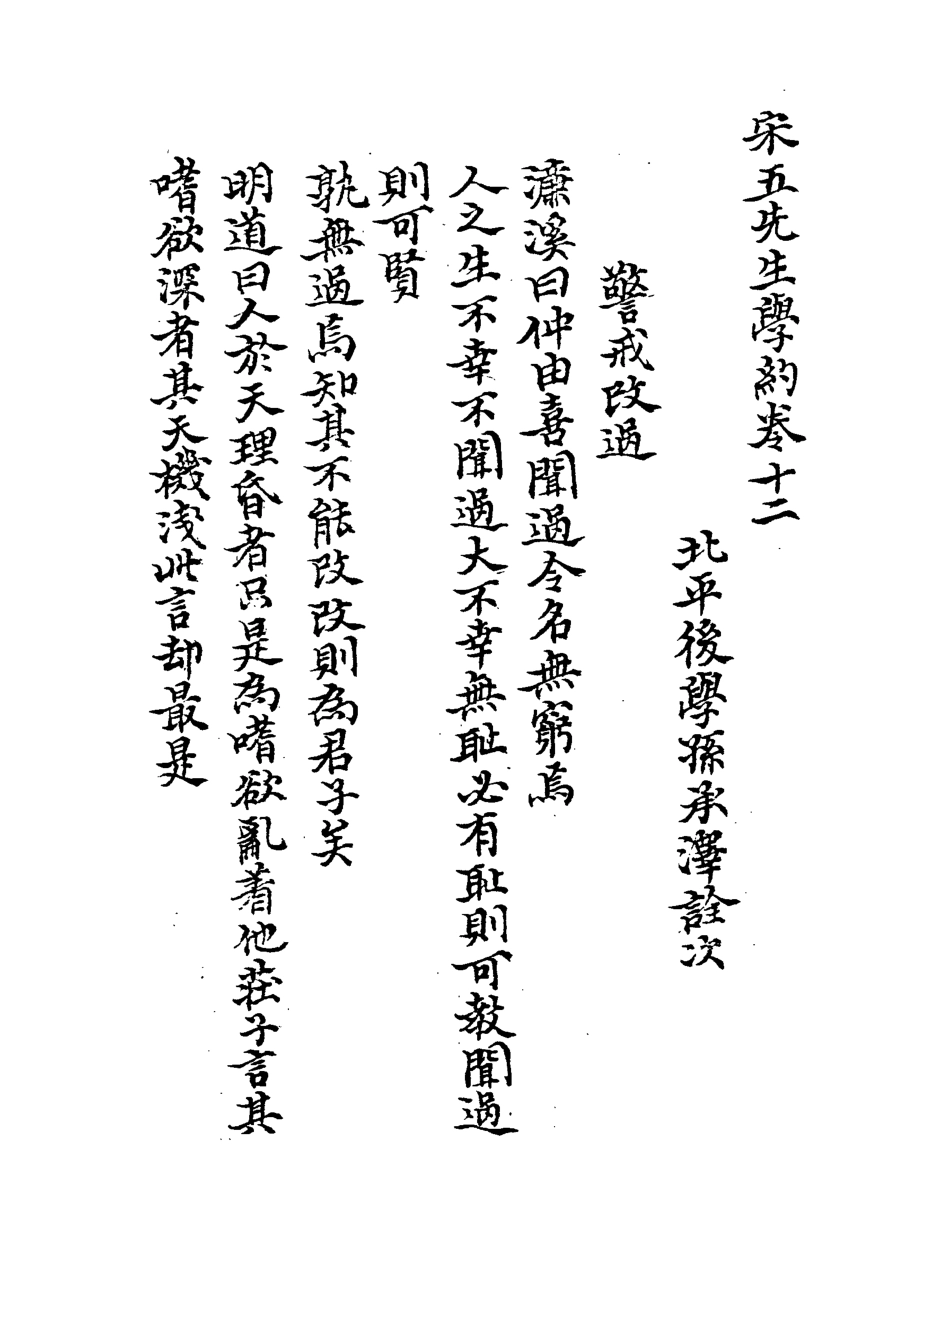 宋五先生學約卷十二
北平後學孫承澤詮次
警戒改過
濂溪曰仲由喜聞過令名無窮焉
人之生不幸不聞過大不幸無恥必有恥則可教聞過
則可賢
孰無過焉知其不能改改則為君子矣
明道曰人於天理昏者只是為嗜欲亂著他莊子言其
嗜欲深者其天機淺此言却最是